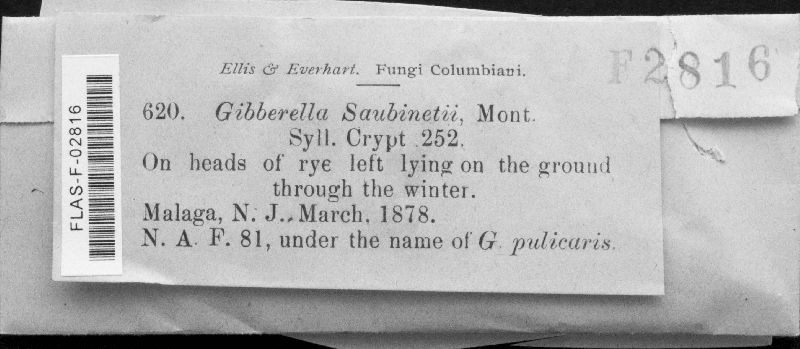 Ellis & Everhart. Fungi Columbiani.
F2816
620. Gibberella Saubinetii, Mont.
Syll. Crypt 252.
On heads of rye left lying on the ground
through the winter.
Malaga, N. J., March, 1878.
N. A. F. 81, under the name of G. pulicaris.
FLAS-F-02816